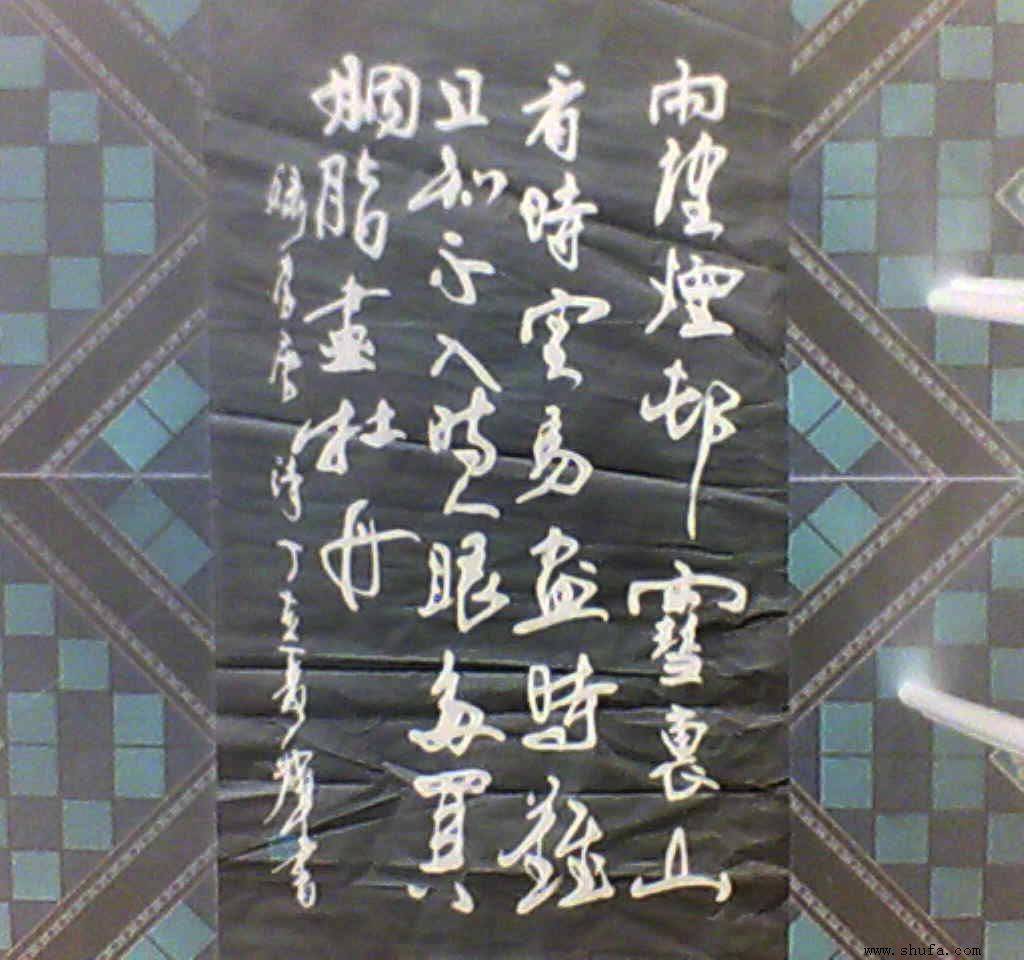 雨望煙邨雪裏山
看時容易畫時難
且知不入時人眼多買
胭脂畫牡丹
唐詩丁亥輝書
www.shufa.com